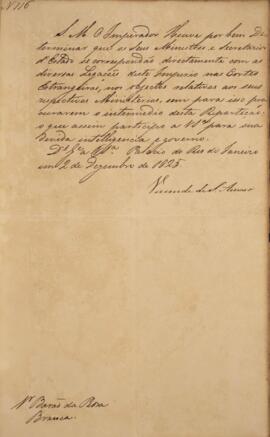 Nº 116
S. M. O Imperador Houve por bem De-
terminar que os Seus Ministros e Secretarios
d'Estado se correspondão directamente com as
diversas Legações deste Imperio nas Cortes
Estrangeiras, nos objectos relativos aos seus
respectivos Ministerios, sem para isso pro-
curarem o intermedio desta Repartição:
o que assim participo a VSª para sua
devida intelligencia e governo.
Ds. Ge. a VSª. Palacio do Rio de Janeiro
em 2 de Dezembro de 1825
Visconde de S. Amaro
Sr. Barão da Rosa
Branca.